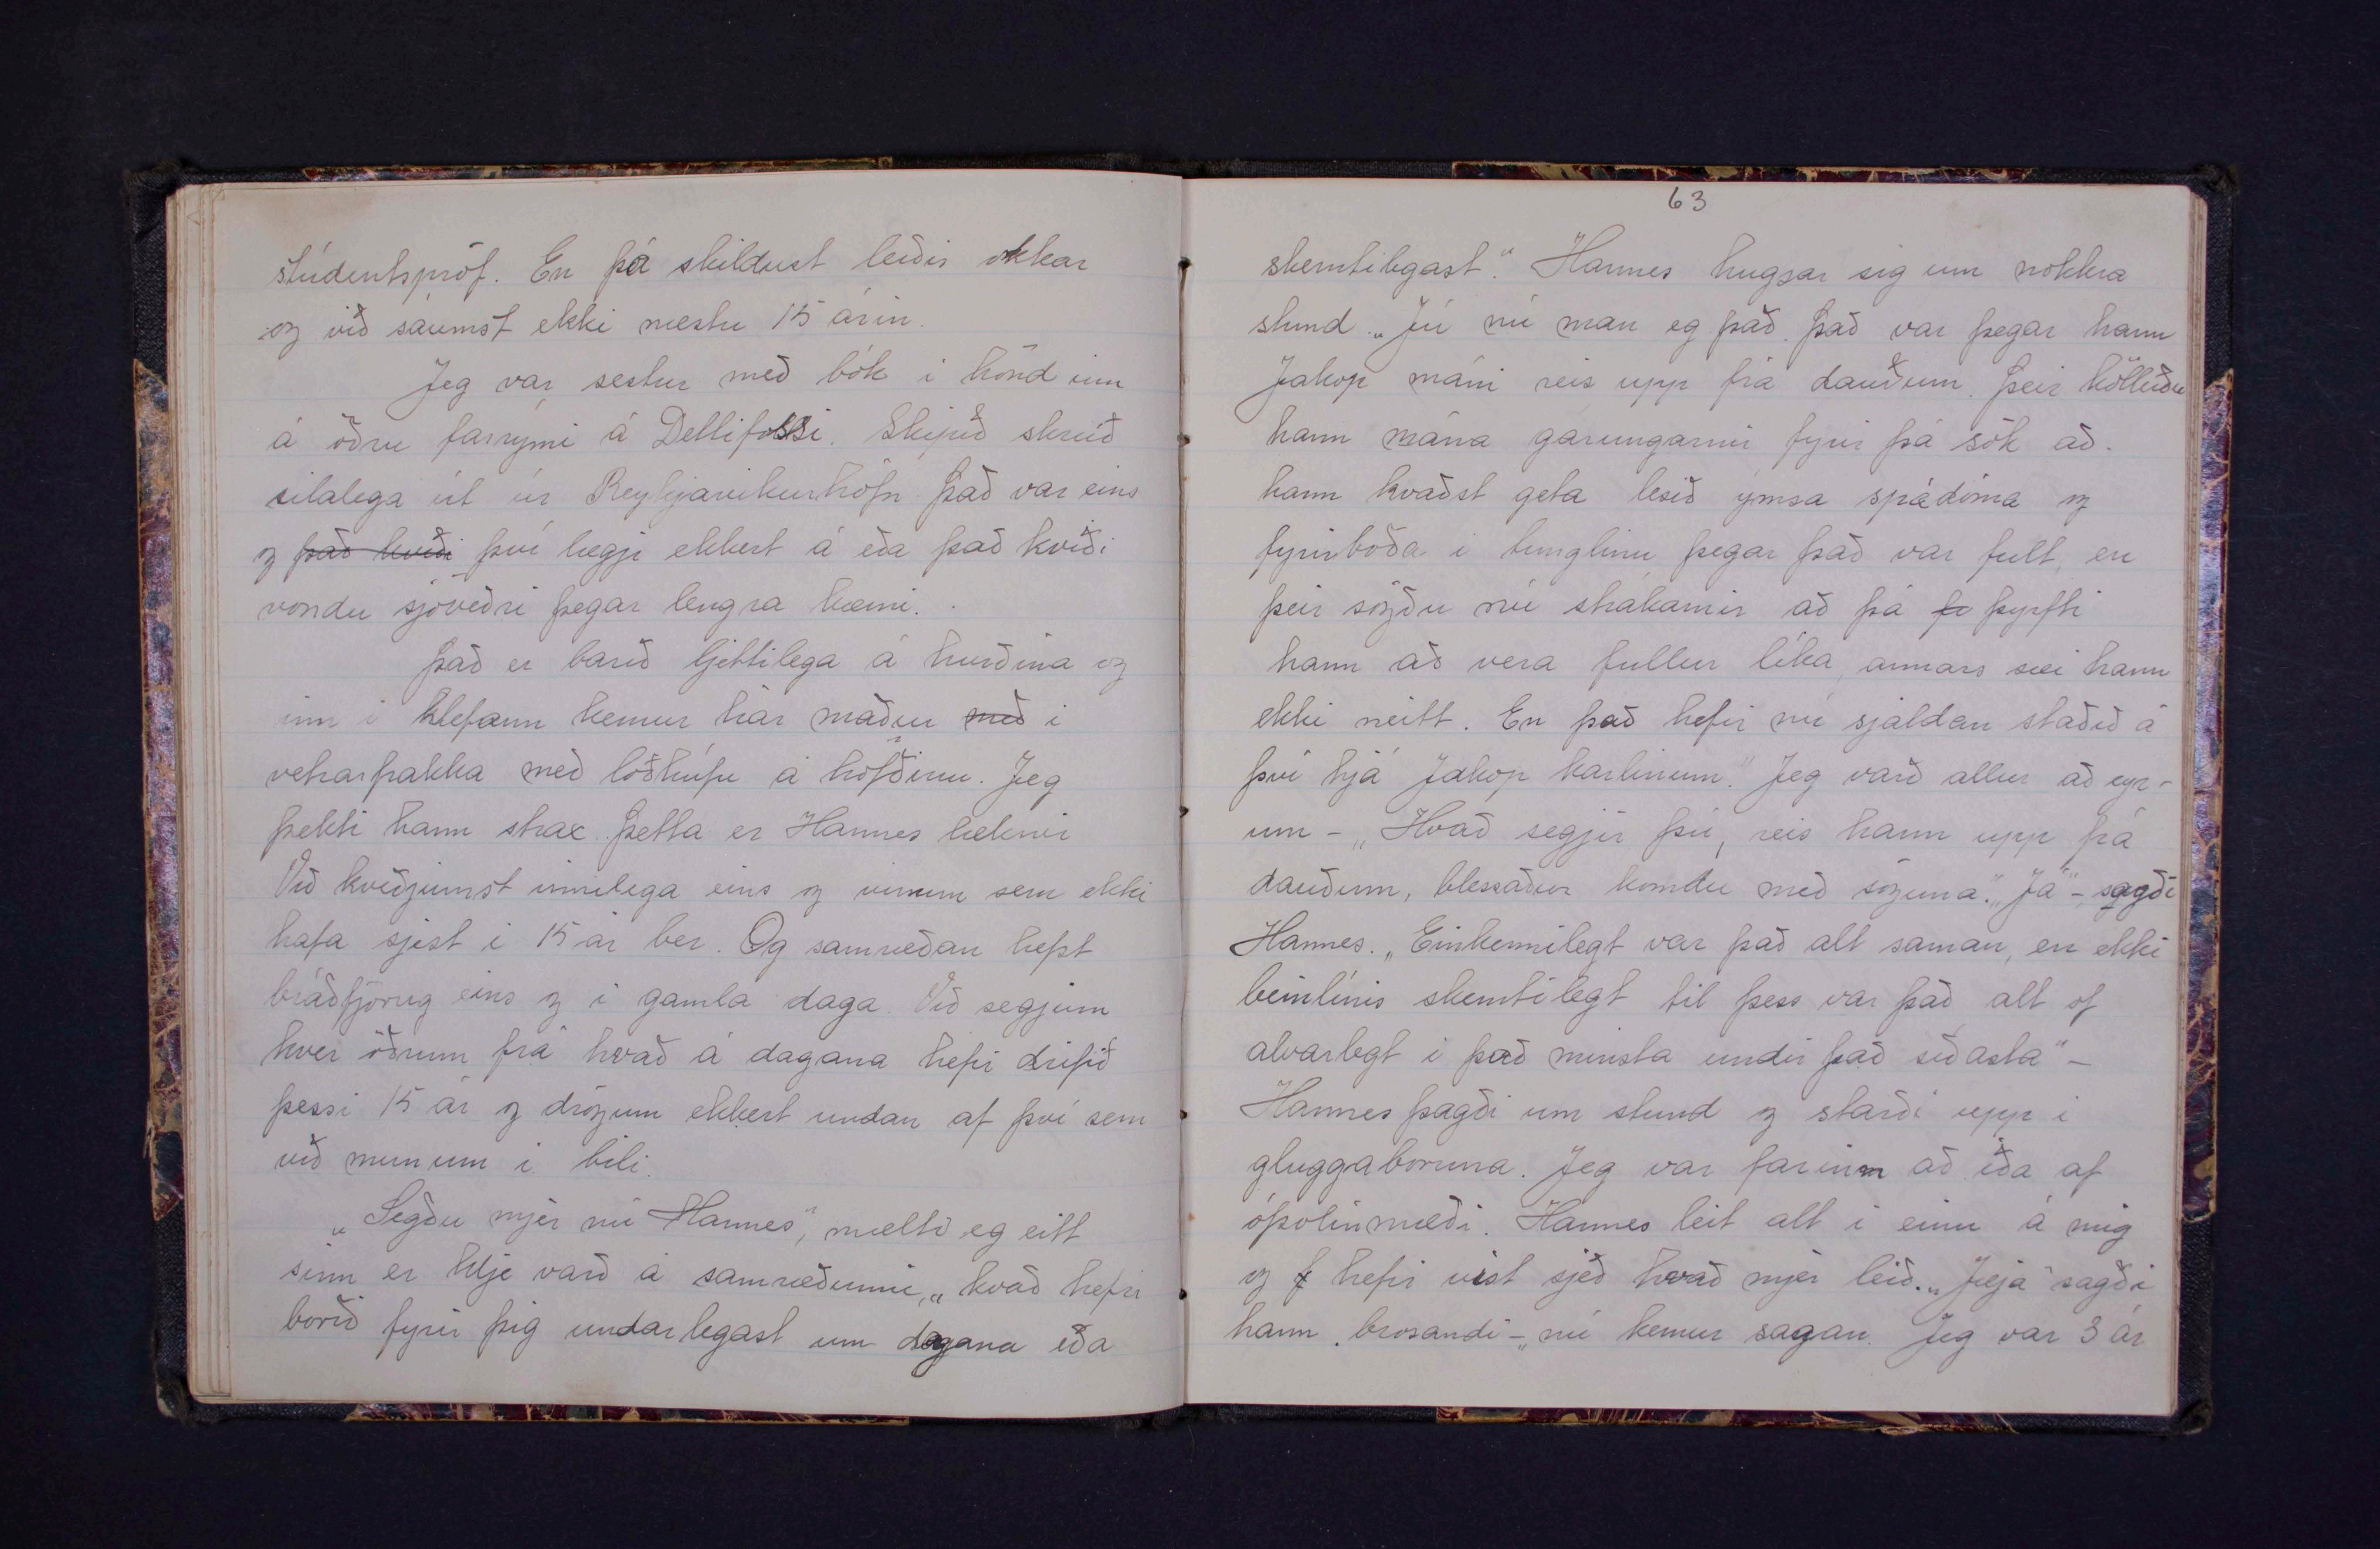 stúdentspróf. En þá skildust leiðir okkar
og við sáumst ekki næstu 15 árin.
Jeg var sestur með bók i hönd inn
á öðru farrými á Dettifossi. Skipið skreið
silalega út úr Reykjavikurhöfn. Það var eins
og það kviði því lægji ekkert á eða það kviði
vondu sjóveðri þegar lengra kæmi.
Það er barið ljettilega á hurðina og
inn i klefann kemur hár maður með i
vetrarfrakka með loðhúfu á höfðinu. Jeg
þekti hann strax. Þetta er Hannes læknir
Við kveðjumst innilega eins og vinum sem ekki
hafa sjest i 15 ár ber. Og samræðan hefst
bráðfjörug eins og i gamla daga. Við segjum
hver öðrum frá hvað á dagana hefir drifið
þessi 15 ár og drögum ekkert undan af því sem
við munum i bili.
„Segðu mjer nú Hannes", mælti eg eitt
sinn er hlje varð á samræðunni, „hvað hefir
borið fyrir þig undarlegast um dagana eða
63
skemtilegast." Hannes hugsar sig um nokkra
stund. „Jú nú man eg það. Það var þegar hann
Jakop máni reis upp frá dauðum. Þeir kölluðu
hann mána gárungarnir fyrir þá sök að
hann kvaðst geta lesið ýmsa spádóma og
fyrirboða i tunglinu þegar það var fult, en
þeir sögðu nú strákarnir að þá þyrfti
hann að vera fullur líka, annars sæi hann
ekki neitt. En það hefir nú sjaldan staðið á
því hjá Jakop karlinum." Jeg varð allur að eyr-
um - „Hvað segjir þú, reis hann upp frá
dauðum, blessaður komdu með söguna." „Já" - sagði
Hannes. „Einkennilegt var það alt saman, en ekki
beinlínis skemtilegt til þess var það alt of
alvarlegt i það minsta undir það síðasta" -
Hannes þagði um stund og starði upp i
gluggaboruna. Jeg var farinn að iða af
óþolinmæði. Hannes leit alt i einu á mig
og f hefir vist sjeð hvað mjer leið. „Jæja" sagði
hann brosandi - „nú kemur sagan. Jeg var 3 ár